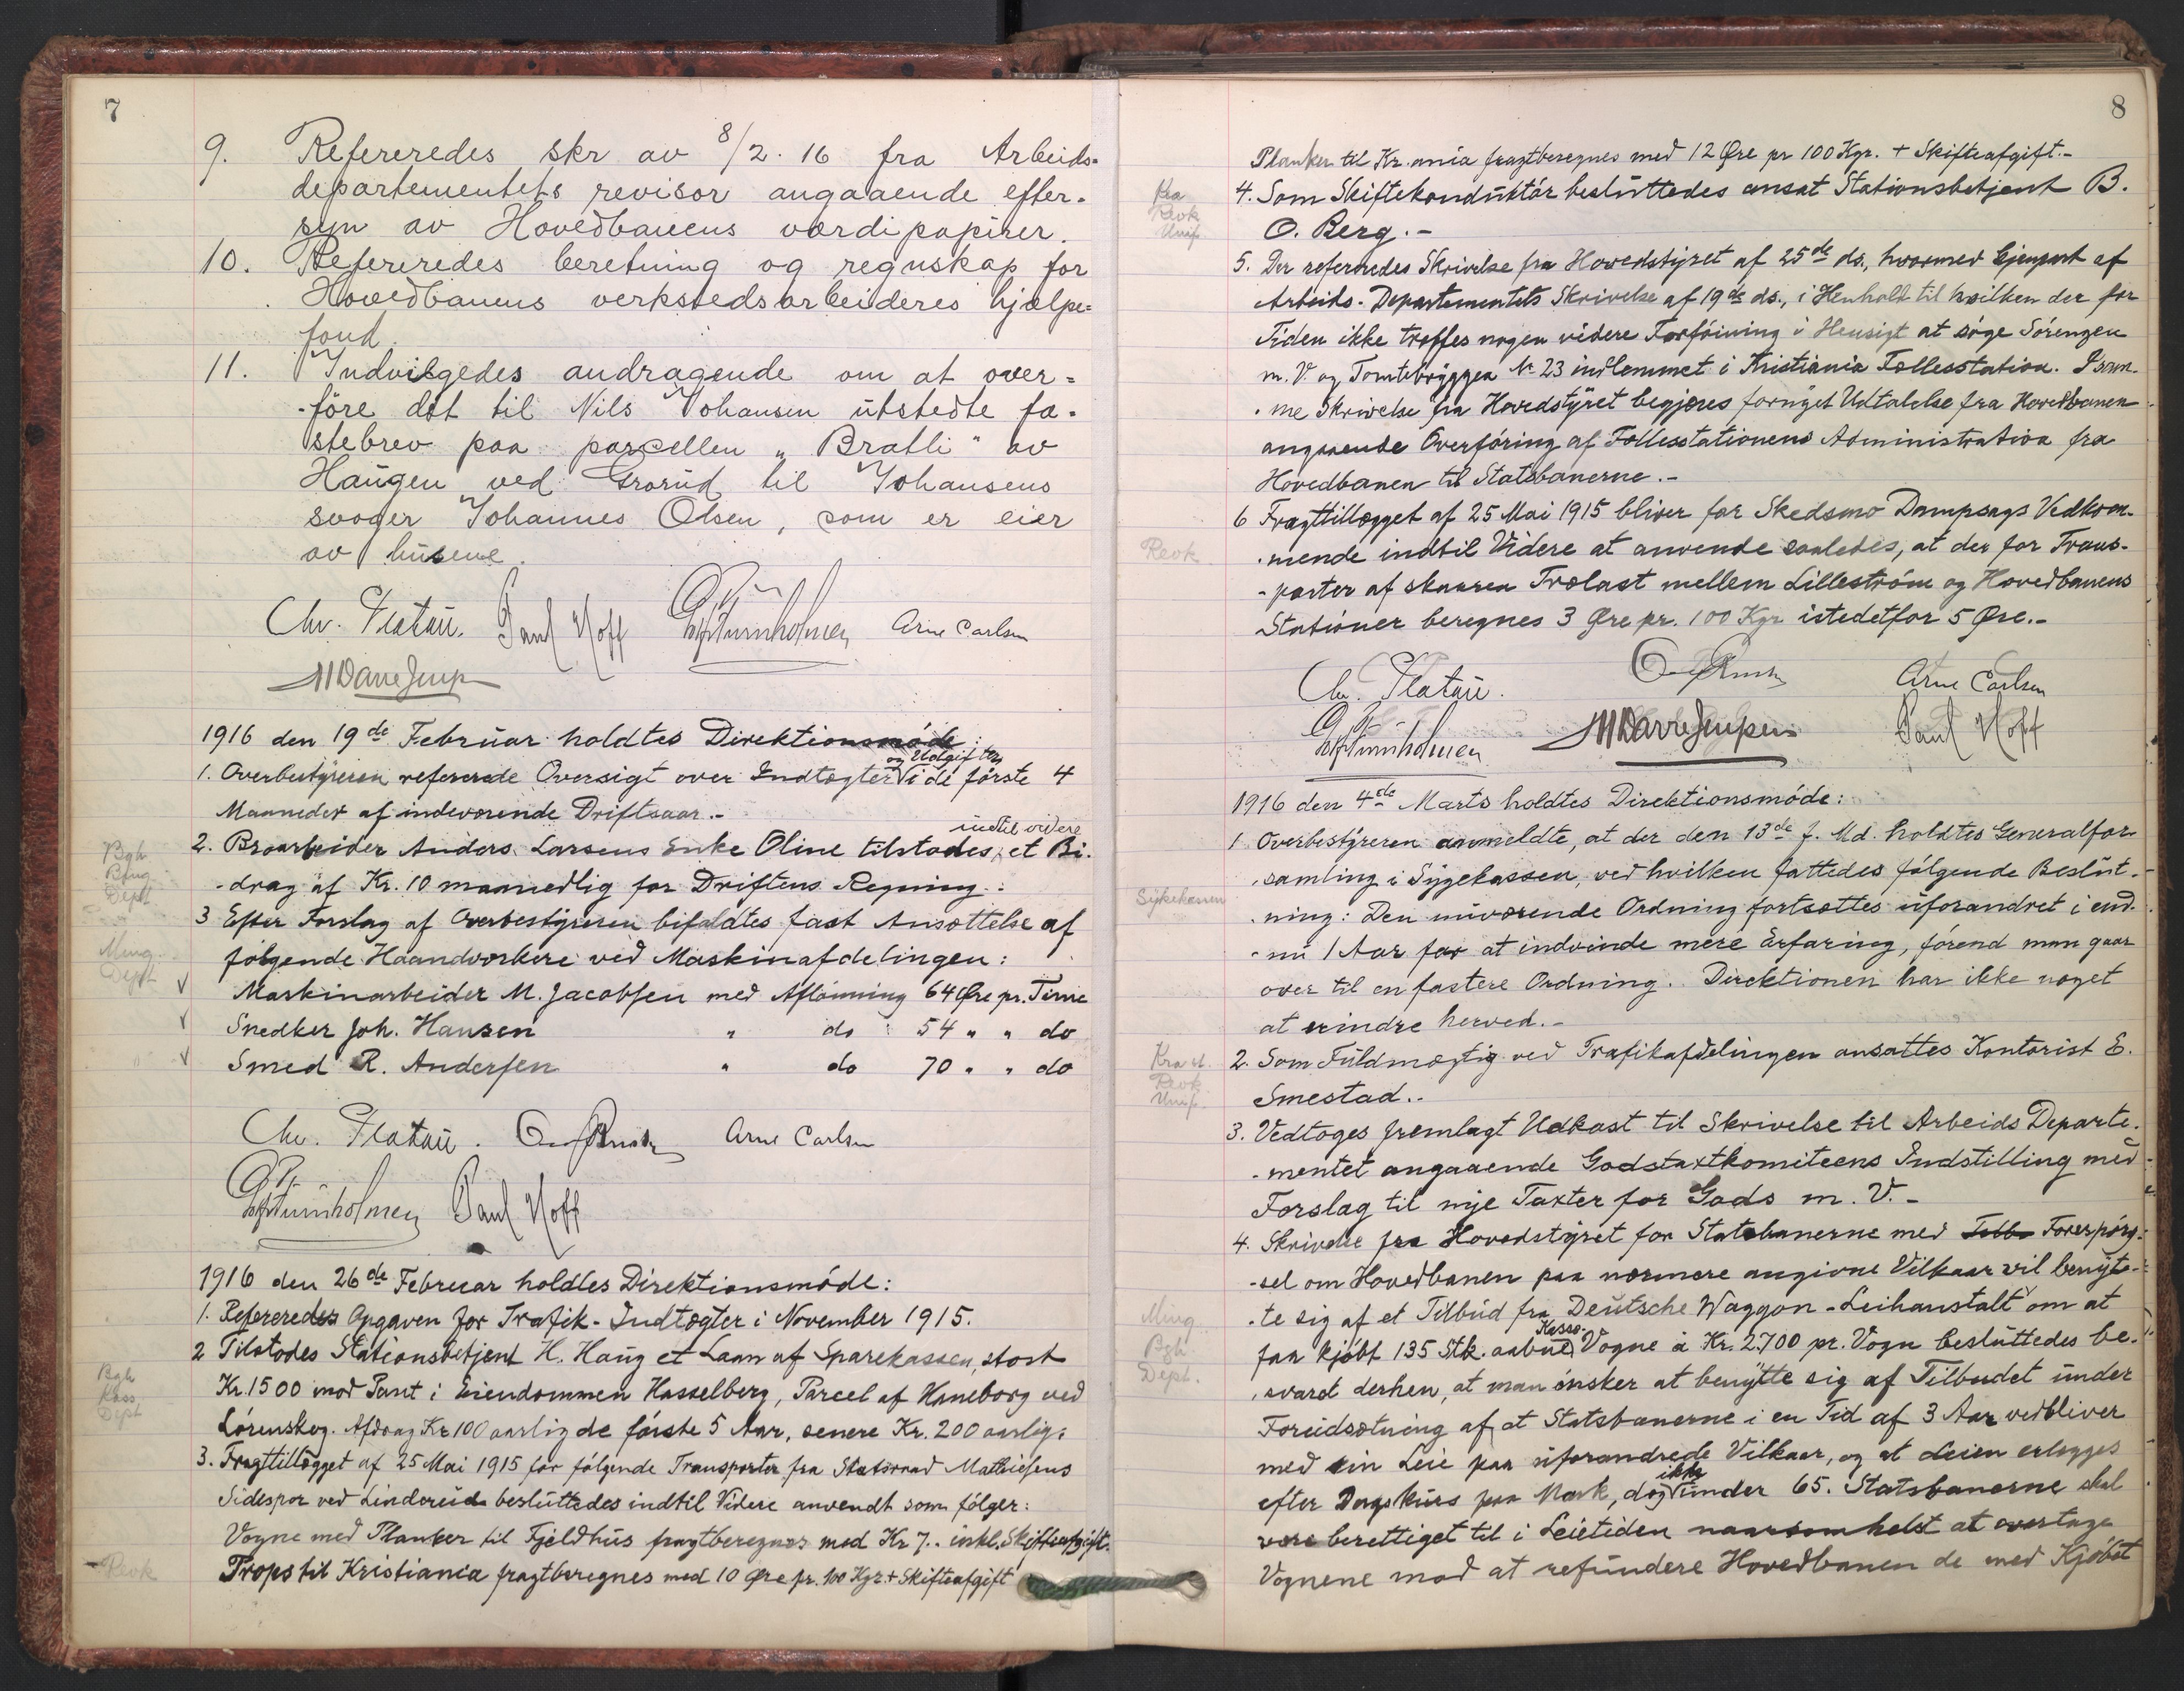 7
9. Refereredes skr av 8/2. 16 fra Arbeids-
departementets revisor angaaende efter-
syn av Hovedbanens værdipapirer.
10. Refereredes beretning og regnskap for
Hovedbanens verkstedsarbeideres hjælpe=
fond.
11. Indvilgedes andragende om at over=
-före det til Nils Johansen utstedte fæ-
stebrev paa parcellen „Bratli" av
Haugen ved Grorud til Johansens
svoger Johannes Olsen, som er eier
av husene.
Chr. Platou. Paul Hoff Arne Carlsen
1916 den 19de Februar holdtes Direktionsmöde:
og Udgifter
1. Overbestyreren refererede Oversigt over Indtægter i de förste 4
Maaneder af indeværende Driftsaar.-
indtil videre
Bgh. 2. Broarbeider Anders Larsens Enke Oline tilstodes et Bi-
-drag af Kr. 10 maanedlig for Driftens Regning.:
Dept.
3 Efter Forslag af Overbestyreren bifaldtes fast Ansættelse af
Ming. følgende Haandværkere ved Maskinafdelingen:
Dept. √ Maskinarbeider M. Jacobsen med Aflönning 64 Øre pr. Time
√ Snedker Joh. Hansen " do 54 " " do
√ Smed R. Andersen " do 70 " " do
Chr. Platou. Arne Carlsen
Paul Hoff
1916 den 26de Februar holdtes Direktionsmöde:
1. Refereredes Opgaven for Trafik-Indtægter i November 1915.
2 Tilstodes Stationsbetjent H. Haug et Laan af Sparekassen, stort
Bgh. Kr. 1500 mod Pant i Eiendommen Hasselberg, Parcel af Haneborg ved
Kass.
Dept Lörenskog. Afdrag Kr 100 aarlig de förste 5 Aar, senere Kr. 200 aarlig.
3. Fragttillægget af 25 Mai 1915 for fölgende Transporter fra Statsraad Mathiesens
Sidespor ved Lindereid besluttedes indtil Videre anvendt som fölger:
Vogne med Planker til Fjeldhus fragtberegnes med Kr 7.. inkl. Skifteafgift.
Revk Props til Kristiania fragtberegnes med 10 Øre pr. 100 Kgr. + Skifteafgift
8
Planker til Kr.ania fragtberegnes med 12 Øre pr 100 Kgr. + Skifteafgift.-
4. Som Skiftekonduktör besluttedes ansat Stationsbetjent B.
Revk
O. Berg.-
5. Der refereredes Skrivelse fra Hovedstyret af 25de ds., hvormed Gjenpart af
Arbeids-Departementets Skrivelse af 19de ds., i Henhold til hvilken der for
Tiden ikke træffes nogen videre Forföining i Hensigt at söge Sörengen
m. V. og Tomtebryggen No 23 indlemmet i Kristiania Fællesstation. I sam-
-me Skrivelse fra Hovedstyret begjæres fornyet Udtalelse fra Hovedbanen
angaaende Overföring af Fællesstationens Administration fra
Hovedbanen til Statsbanerne.-
6 Fragttillægget af 25 Mai 1915 bliver for Skedsmo Dampsags Vedkom-
Revk -mende indtil Videre at anvende saaledes, at der for Trans-
-porter af skaaren Trælast mellem Lilleström og Hovedbanens
Stationer beregnes 3 Øre pr. 100 Kgr istedetfor 5 Øre.-
Chr. Platou. Arne Carlsen
Paul Hoff
1916 den 4de Marts holdtes Direktionsmöde:
1 Overbestyreren anmeldte, at der den 13de f. Md. holdtes Generalfor-
-samling i Sygekassen, ved hvilken fattedes fölgende Beslut-
Sykekassen -ning: Den nuværende Ordning fortsættes uforandret i end-
-nu 1 Aar for at indvinde mere Erfaring, förend man gaar
over til en fastere Ordning. Direktionen har ikke noget
at erindre herved.-
2. Som Fuldmægtig ved Trafikafdelingen ansattes Kontorist E.
Revk
Smestad..
3. Vedtoges fremlagt Udkast til Skrivelse til Arbeids Departe-
-mentet angaaende Godstaxtkomiteens Indstilling med
Forslag til nye Taxter for Gods m. V.-
4. Skrivelse fra Hovedstyret for Statsbanerne med Forespörg-
-sel om Hovedbanen paa nærmere angivne Vilkaar vil benyt-
Ming -te sig af et Tilbud fra Deutsche Waggon-Leihanstalt om at
Kasse-
Bgh faa kjöbt 135 Stk. aabne Vogne à Kr. 2.700 pr. Vogn besluttedes be-
Dept. -svaret derhen, at man önsker at benytte sig af Tilbudet under
Forudsætning af at Statsbanerne i en Tid af 3 Aar vedbliver
med sin Leie paa uforandrede Vilkaar, og at Leien erlægges
ikke
efter Dagskurs paa Mark, dog under 65. Statsbanerne skal
være berettiget til i Leietiden naarsomhelst at overtage
Vognene mod at refundere Hovedbanen de med Kjöbet